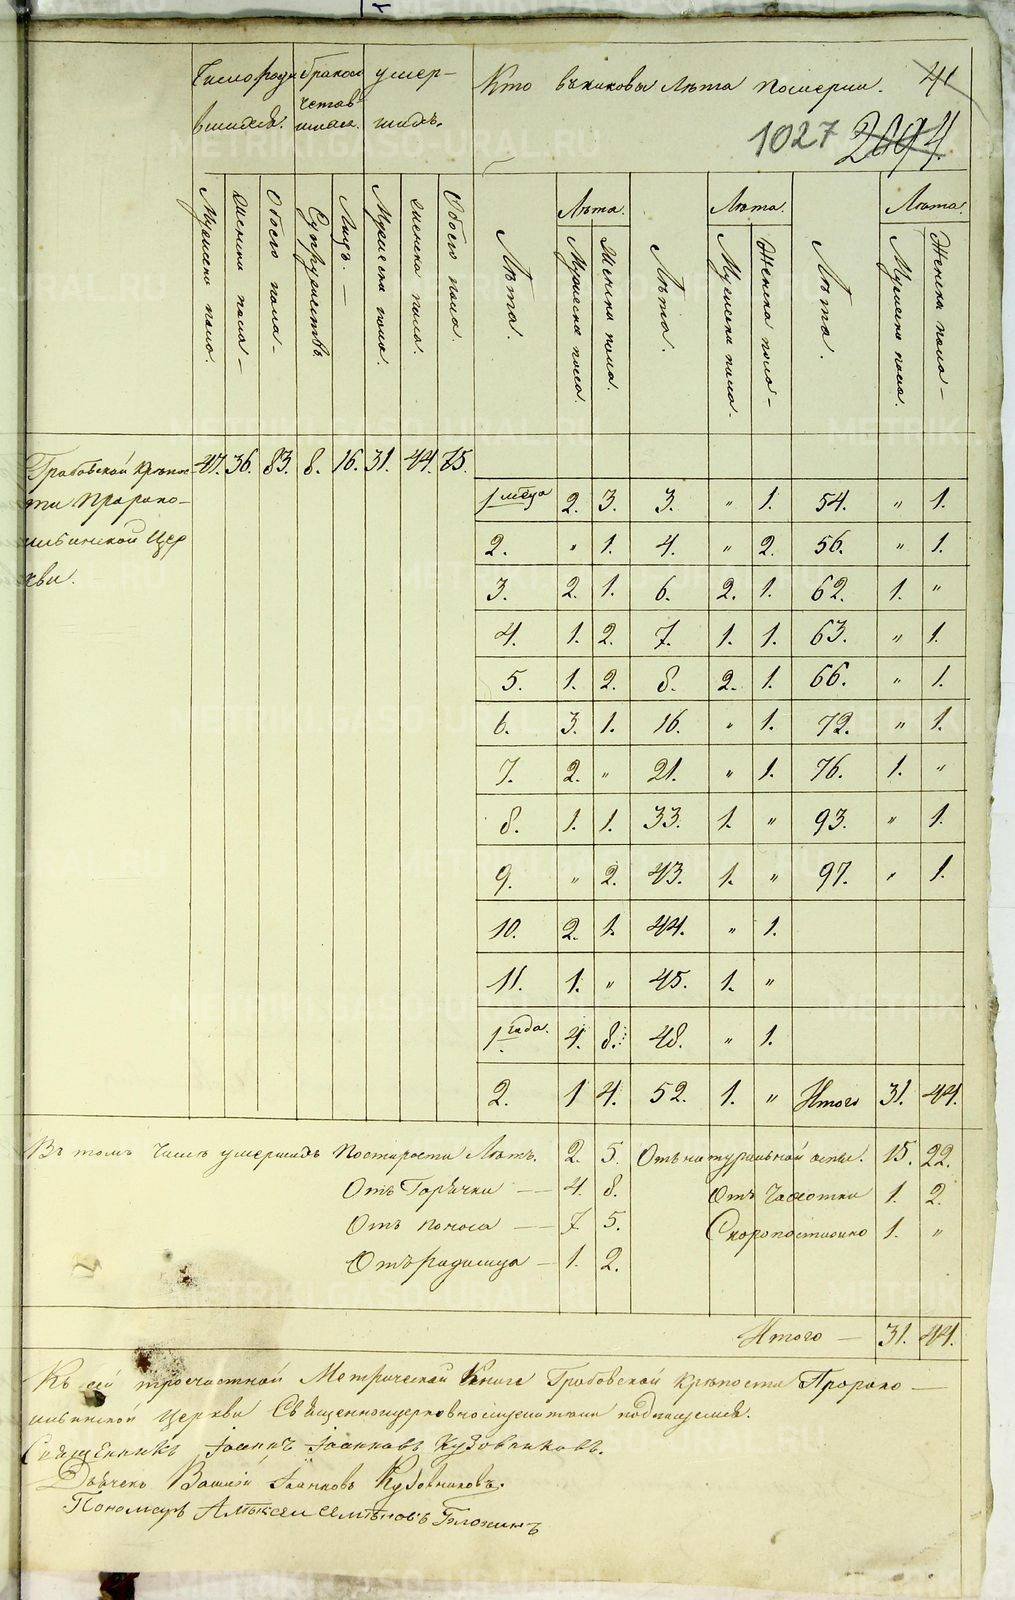 Число роди бракомъ умер- Кто въ каковы Лѣта померли. 41
вшихся. четав шихся. шихъ. 1027 2094
Мужеска пола. Женска пола Обоего пола Супружествъ Лицъ. Мужеска пола. Женска пола. Обоего пола. Лѣта. Лѣта. Мужеска пола. Женска пола. Лѣта. Лѣта. Мужеска пола. Женска пола Лѣта. Лѣта. Мужеска пола. Женска пола
Гробовской Крѣпос 47. 36. 83. 8. 16. 31. 44. 75.
ти Пророко-
ильинской Цер
кви.
1 мѣца 2. 3. 3. " 1. 54. " 1.
2. " 1. 4. " 2. 56. " 1.
3. 2. 1. 6. 2. 1. 62. 1. "
4. 1. 2. 7. 1. 1. 63. " 1.
5. 1. 2. 8. 2. 1. 66. " 1.
6. 3. 1. 16. " 1. 72. " 1.
7. 2. " 21. " 1. 76. 1. "
8. 1. 1. 33. 1. " 93. " 1.
9. " 2. 43. 1. " 97. " 1.
10. 2. 1. 44. " 1.
11. 1. " 45. 1. "
1 года. 4. 8. 48. " 1.
2. 1 4. 52. 1. " Итого 31. 44.
Въ томъ Числѣ умершихъ По старости Лѣтъ. 2. 5. Отъ натуральной оспы. 15. 22.
Отъ Горячки 4. 8. Отъ Чахотки 1. 2.
Отъ поноса 7 5. Скоропостижно 1. "
Отъ родимца 1. 2.
Итого 31. 44.
Къ сей троечастной Метрической Книге Гробовской Крѣпости Пророко-
ильинской Церкви Священноцерковнослужители подписуемся.
Священникъ Іоаннъ Іоанновъ Кузовниковъ.
Дьячекъ Василей Іоанновъ Кузовниковъ.
Пономарь Алѣксеи Семѣновъ